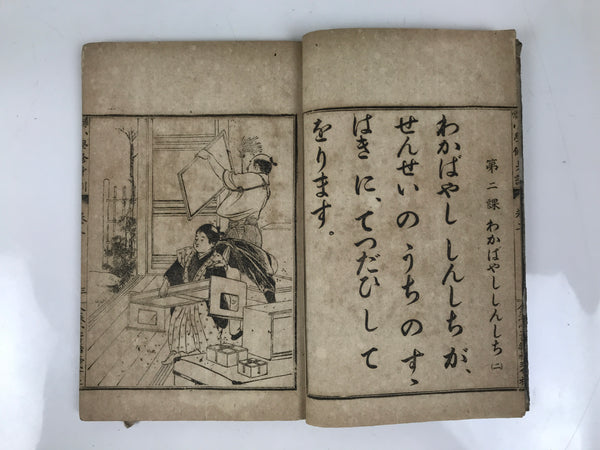 第二課 わかばやししんしち(二)
わかばやし しんしちが、
せんせいの うちの すゝ
はきに、てつだひして
をります。